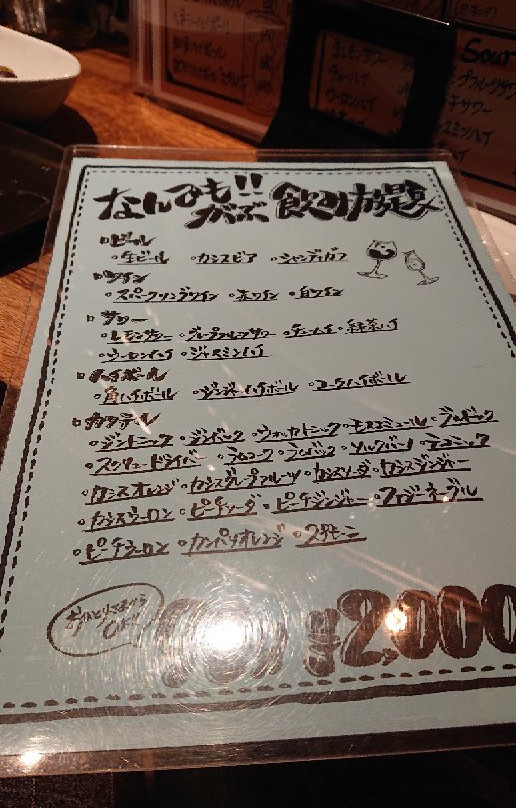 なんでも!! がぶ 飲み放題
ビール
・生ビール ・カシスビア ・シャンディガフ
ワイン
・スパークリングワイン ・赤ワイン ・白ワイン
サワー
・レモンサワー ・グレープフルーツサワー ・チューハイ ・緑茶ハイ
・ウーロンハイ ・ジャスミンハイ
ハイボール
・角ハイボール ・ジンジャーハイボール ・コークハイボール
カクテル
・ジントニック ・ジンバック ・ウォッカトニック ・モスコミュール ・ブルドック
・スクリュードライバー ・ラムコーク ・ラムバック ・ソルクバーノ ・テコニック
・カシスオレンジ ・カシスグレープフルーツ ・カシスソーダ ・カシスジンジャー
・カシスウーロン ・ピーチソーダ ・ピーチジンジャー ・ファジーネーブル
・ピーチウーロン ・カンパリオレンジ ・スプモーニ
おひとりさまから
OK!!
¥2,000
Sour